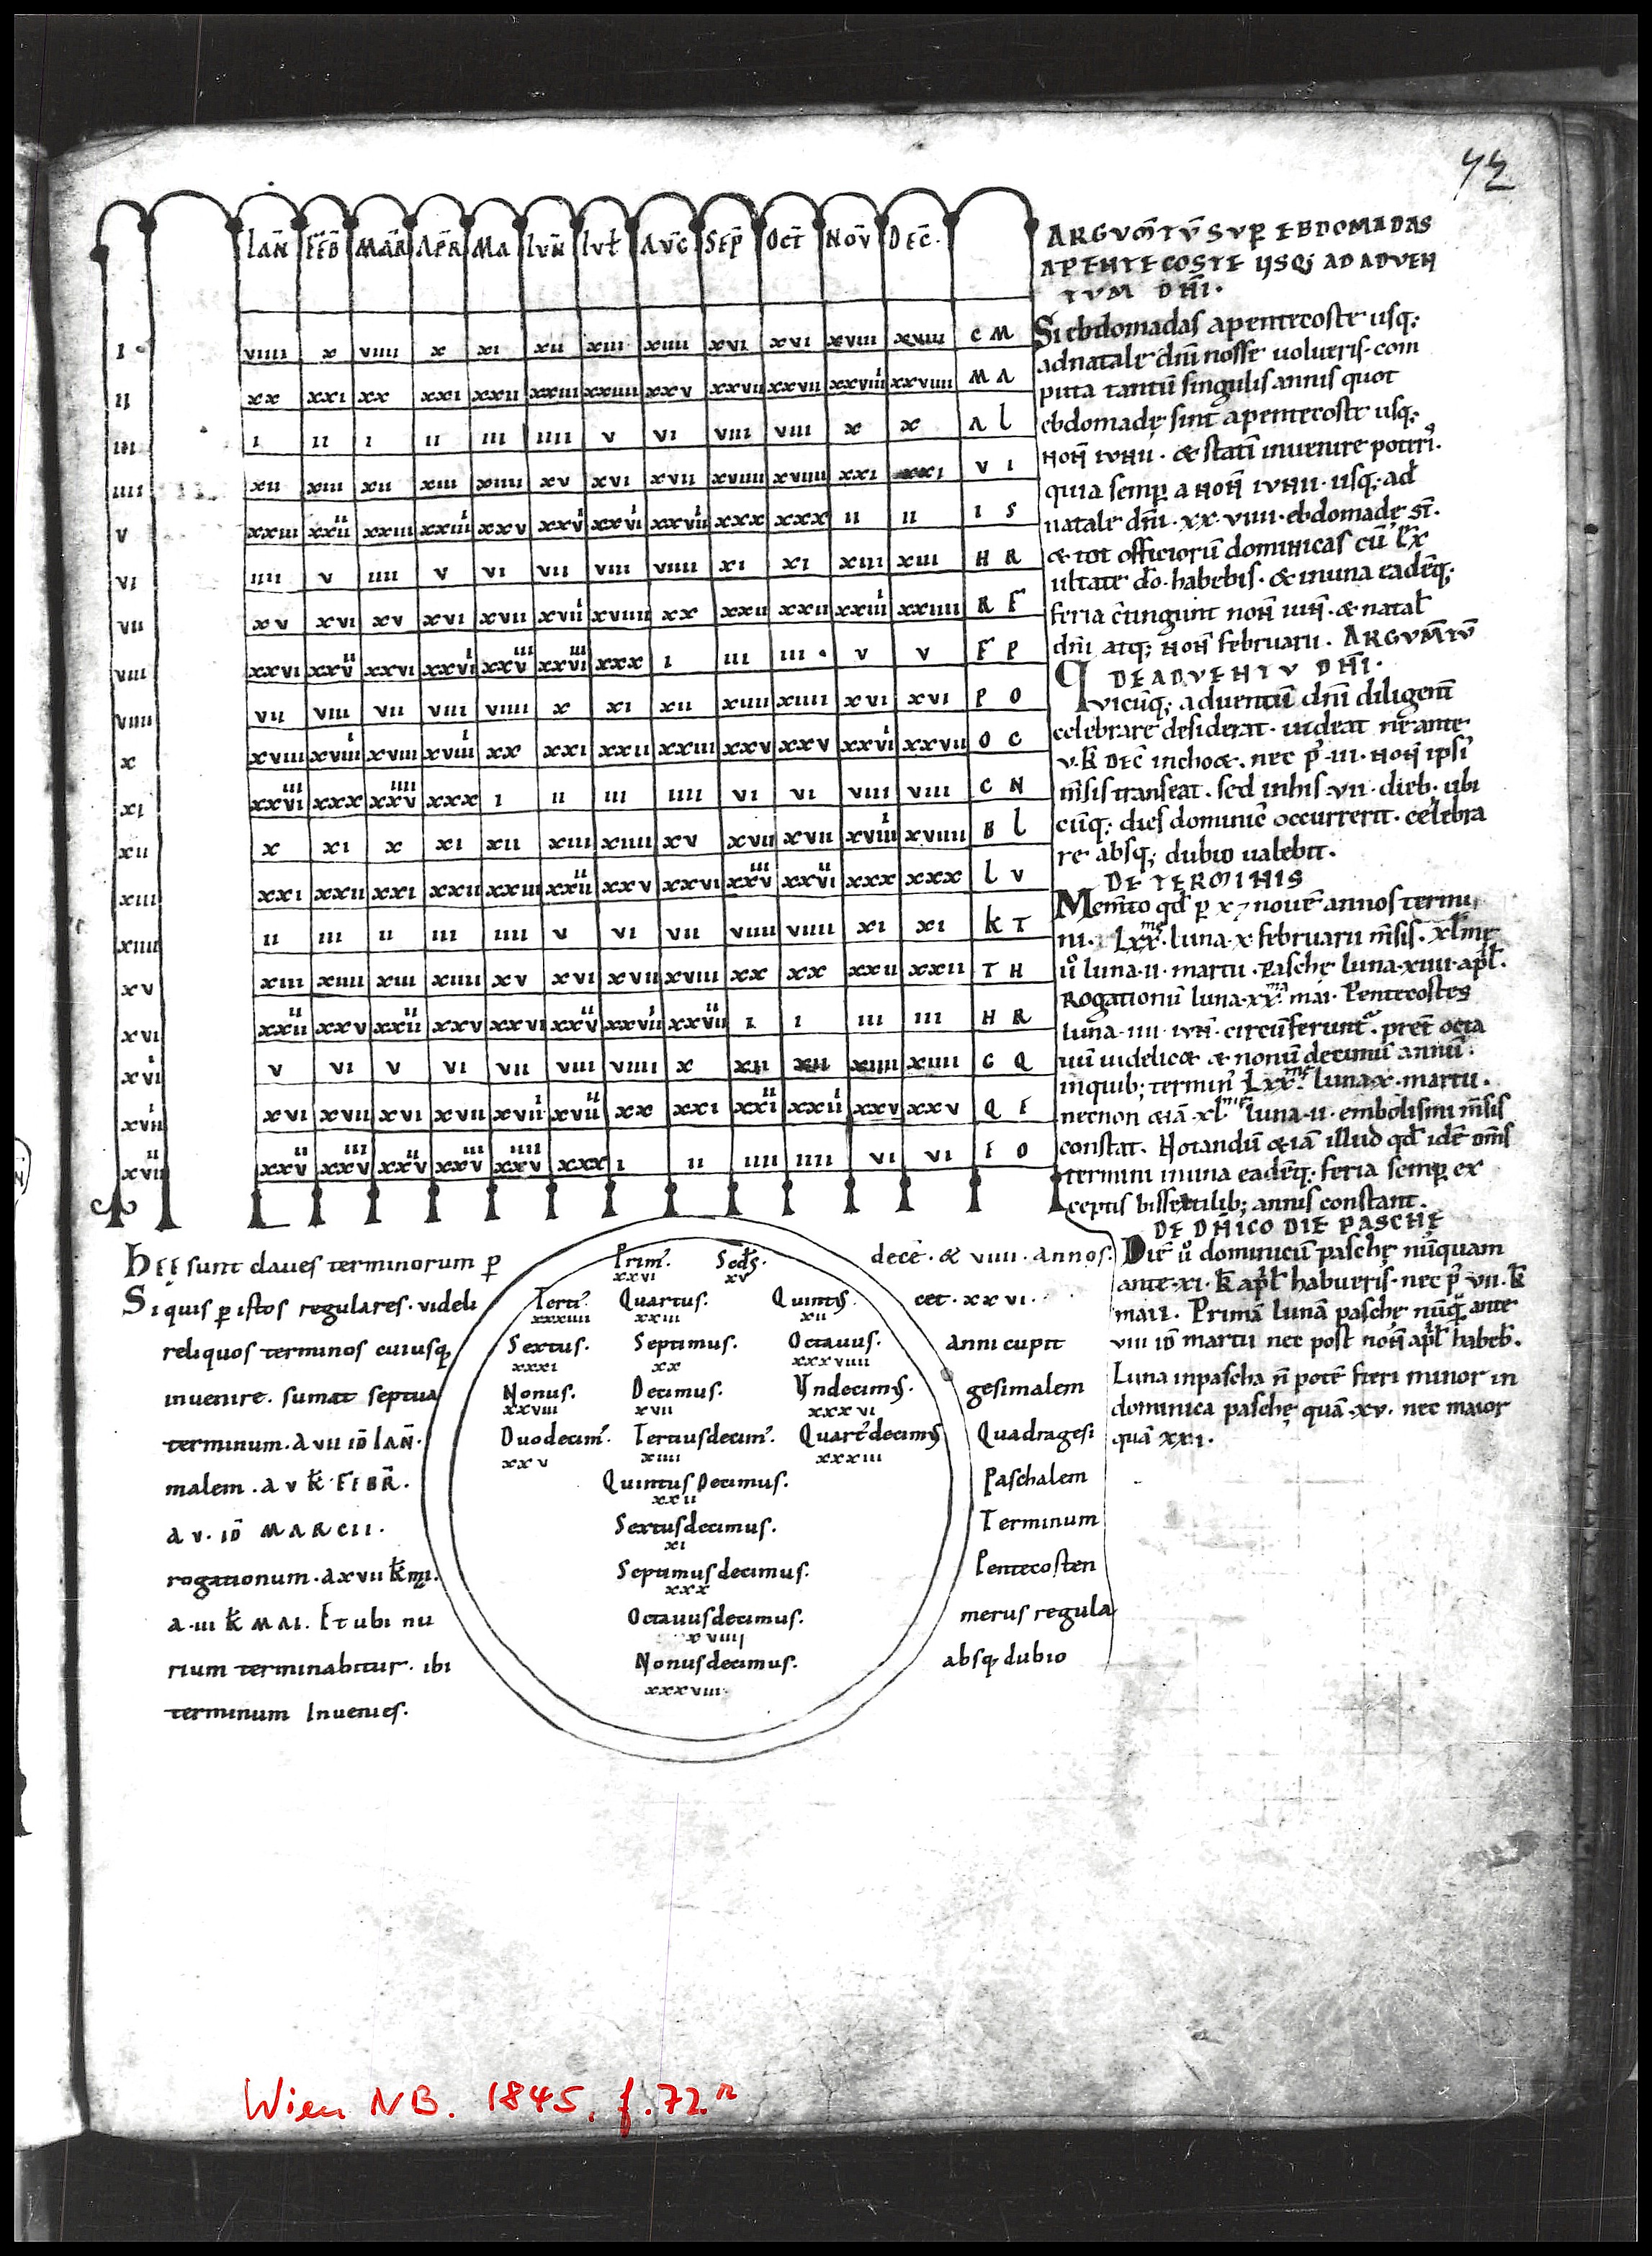 72
IAN̄ FEB̄ MAR̄ APR̄ MA IVN̄ IVƚ AVḠ SEP̄ OCT̄ NOV̄ DEC̄.
I viiii x viiii x xi xii xiii xiiii xvi xvi xviii xviii C M
II xx xxi xx xxi xxii xxiii xxiiii xxv xxvii xxvii xxviiii xxviiii M A
III i ii i ii iii iiii v vi viii viii x x A L
IIII xii xiii xii xiii xiiii xv xvi xvii xviiii xviiii xxi xxi V I
V xxiii xxiiii xxiii xxiiii xxv xxvi xxvii xxviii xxx xxx ii ii I S
VI iiii v iiii v vi vii viii viiii xi xi xiii xiii H R
VII xv xvi xv xvi xvii xviii xviiii xx xxii xxii xxiiii xxiiii R F
VIII xxvi xxvii xxvi xxvii xxviii xxviiii xxx i iii iii v v F P
VIIII vii viii vii viii viiii x xi xii xiiii xiiii xvi xvi P O
X xviii xviiii xviii xviiii xx xxi xxii xxiii xxv xxv xxvii xxvii O C
XI xxviiii xxx xxviiii xxx i ii iii iiii vi vi viii viii C N
XII x xi x xi xii xiii xiiii xv xvii xvii xviiii xviiii B L
XIII xxi xxii xxi xxii xxiii xxiiii xxv xxvi xxviii xxviii xxx xxx L V
XIIII ii iii ii iii iiii v vi vii viiii viiii xi xi K T
XV xiii xiiii xiii xiiii xv xvi xvii xviii xx xx xxii xxii T H
XVI xxiiii xxv xxiiii xxv xxvi xxvii xxviii xxviiii i i iii iii H R
XVII v vi v vi vii viii viiii x xii xii xiiii xiiii G Q
XVIII xvi xvii xvi xvii xviii xviiii xx xxi xxiii xxiii xxv xxv Q F
XVIIII xxvii xxviii xxvii xxviii xxviiii xxx i ii iiii iiii vi vi F O
ARGVM̄TV̄ SVP̄ EBDOMADAS
A PENTECOSTE VSQ; AD ADVEN
TVM DN̄I.
Si ebdomadas a pentecoste usq;
ad natale dn̄i nosse uolueris. com
puta tantū singulis annis quot
ebdomadę sint a pentecoste usq;
noñ iunii. & statī inuenire poteri᷒.
quia semp̄ a noñ iunii. usq; ad
natale dn̄i. xx. viiii. ebdomadę st̄.
& tot officiorū dominicas cū
ultate do. habebis. & in una eadēq;
feria ꝯiungunt noñ iuñ. & natal̄
dn̄i atq; noñ februarii. ARGVM̄TV̄
DE ADVENTV DN̄I.
Quicūq; aduentū dn̄i diligent̄
celebrare desiderat. uideat ne ante
v. k̄ DEC̄ inchoet. nec p̄. iii. noñ ipsi᷒
m̄sis transeat. sed in his. vii. dieb; ubi
cūq; dies dominic̄ occurrerit. celebra
re absq; dubio ualebit.
DE TERMINIS
Mem̄to qd̄ p x & nouē annos termi
ni. Lxx.me luna. x. februarii m̄sis. xl.me
u͛o luna. ii. martii. Paschę luna. xiiii. apƚ.
Rogationū luna. xx.ma mai. Pentecostes
luna. iiii. iuñ. circūferunt᷒. pret̄ octa
uū uidelicet & nonū decimū annū.
in quib; termin̄ Lxx.me luna. x. martii.
necnon &iā xl.me luna. ii. embolismi m̄sis
constat. Notandū &iā illud qd̄ idē om̄s
termini in una eadēq; feria semp̄ ex
ceptis bissextilib; annis constant.
DE DN̄ICO DIE PASCHĘ
Diē u͛o dominicū paschę nūquam
ante. xi. k̄ apƚ habueris. nec p̄. vii. k̄
maii. Primā lunā paschę nūq̄ ante
viii id̄ martii nec post noñ apƚ habeb̄.
Luna in pascha n̄ potē fieri minor in
dominica paschę quā. xv. nec maior
quā xxi.
HEE sunt claues terminorum p decē. & viiii. annos.
Si quis p istos regulares. videli cet. xxvi.
reliquos terminos cuiusq anni cupit
inuenire. sumat septua gesimalem
terminum. a vii id̄ IAN̄. Quadragesi
malem. a v k̄. FEBR̄. Paschalem
a v. id̄ MARCII. Terminum
rogationum. a xvii k̄ mii. Pentecosten
a. iii k̄ MAI. Et ubi nu merus regula
rium terminabitur. ibi absq dubio
terminum Inuenies.
Prim᷒. Scd᷒s.
xxvi xv
Terti᷒. Quartus. Quint᷒s.
xxxiiii xxiii xii
Sextus. Septimus. Octauus.
xxxi xx xxxviiii
Nonus. Decimus. Vndecim᷒s.
xxviii xvii xxxvi
Duodecim᷒. Terciusdecim᷒. Quart᷒decim᷒s
xxv xiiii xxxiii
Quintus Decimus.
xxii
Sextusdecimus.
xi
Septimusdecimus.
xxx
Octauusdecimus.
xviiii
Nonusdecimus.
xxxviii.
Wien NB. 1845. f. 72.r